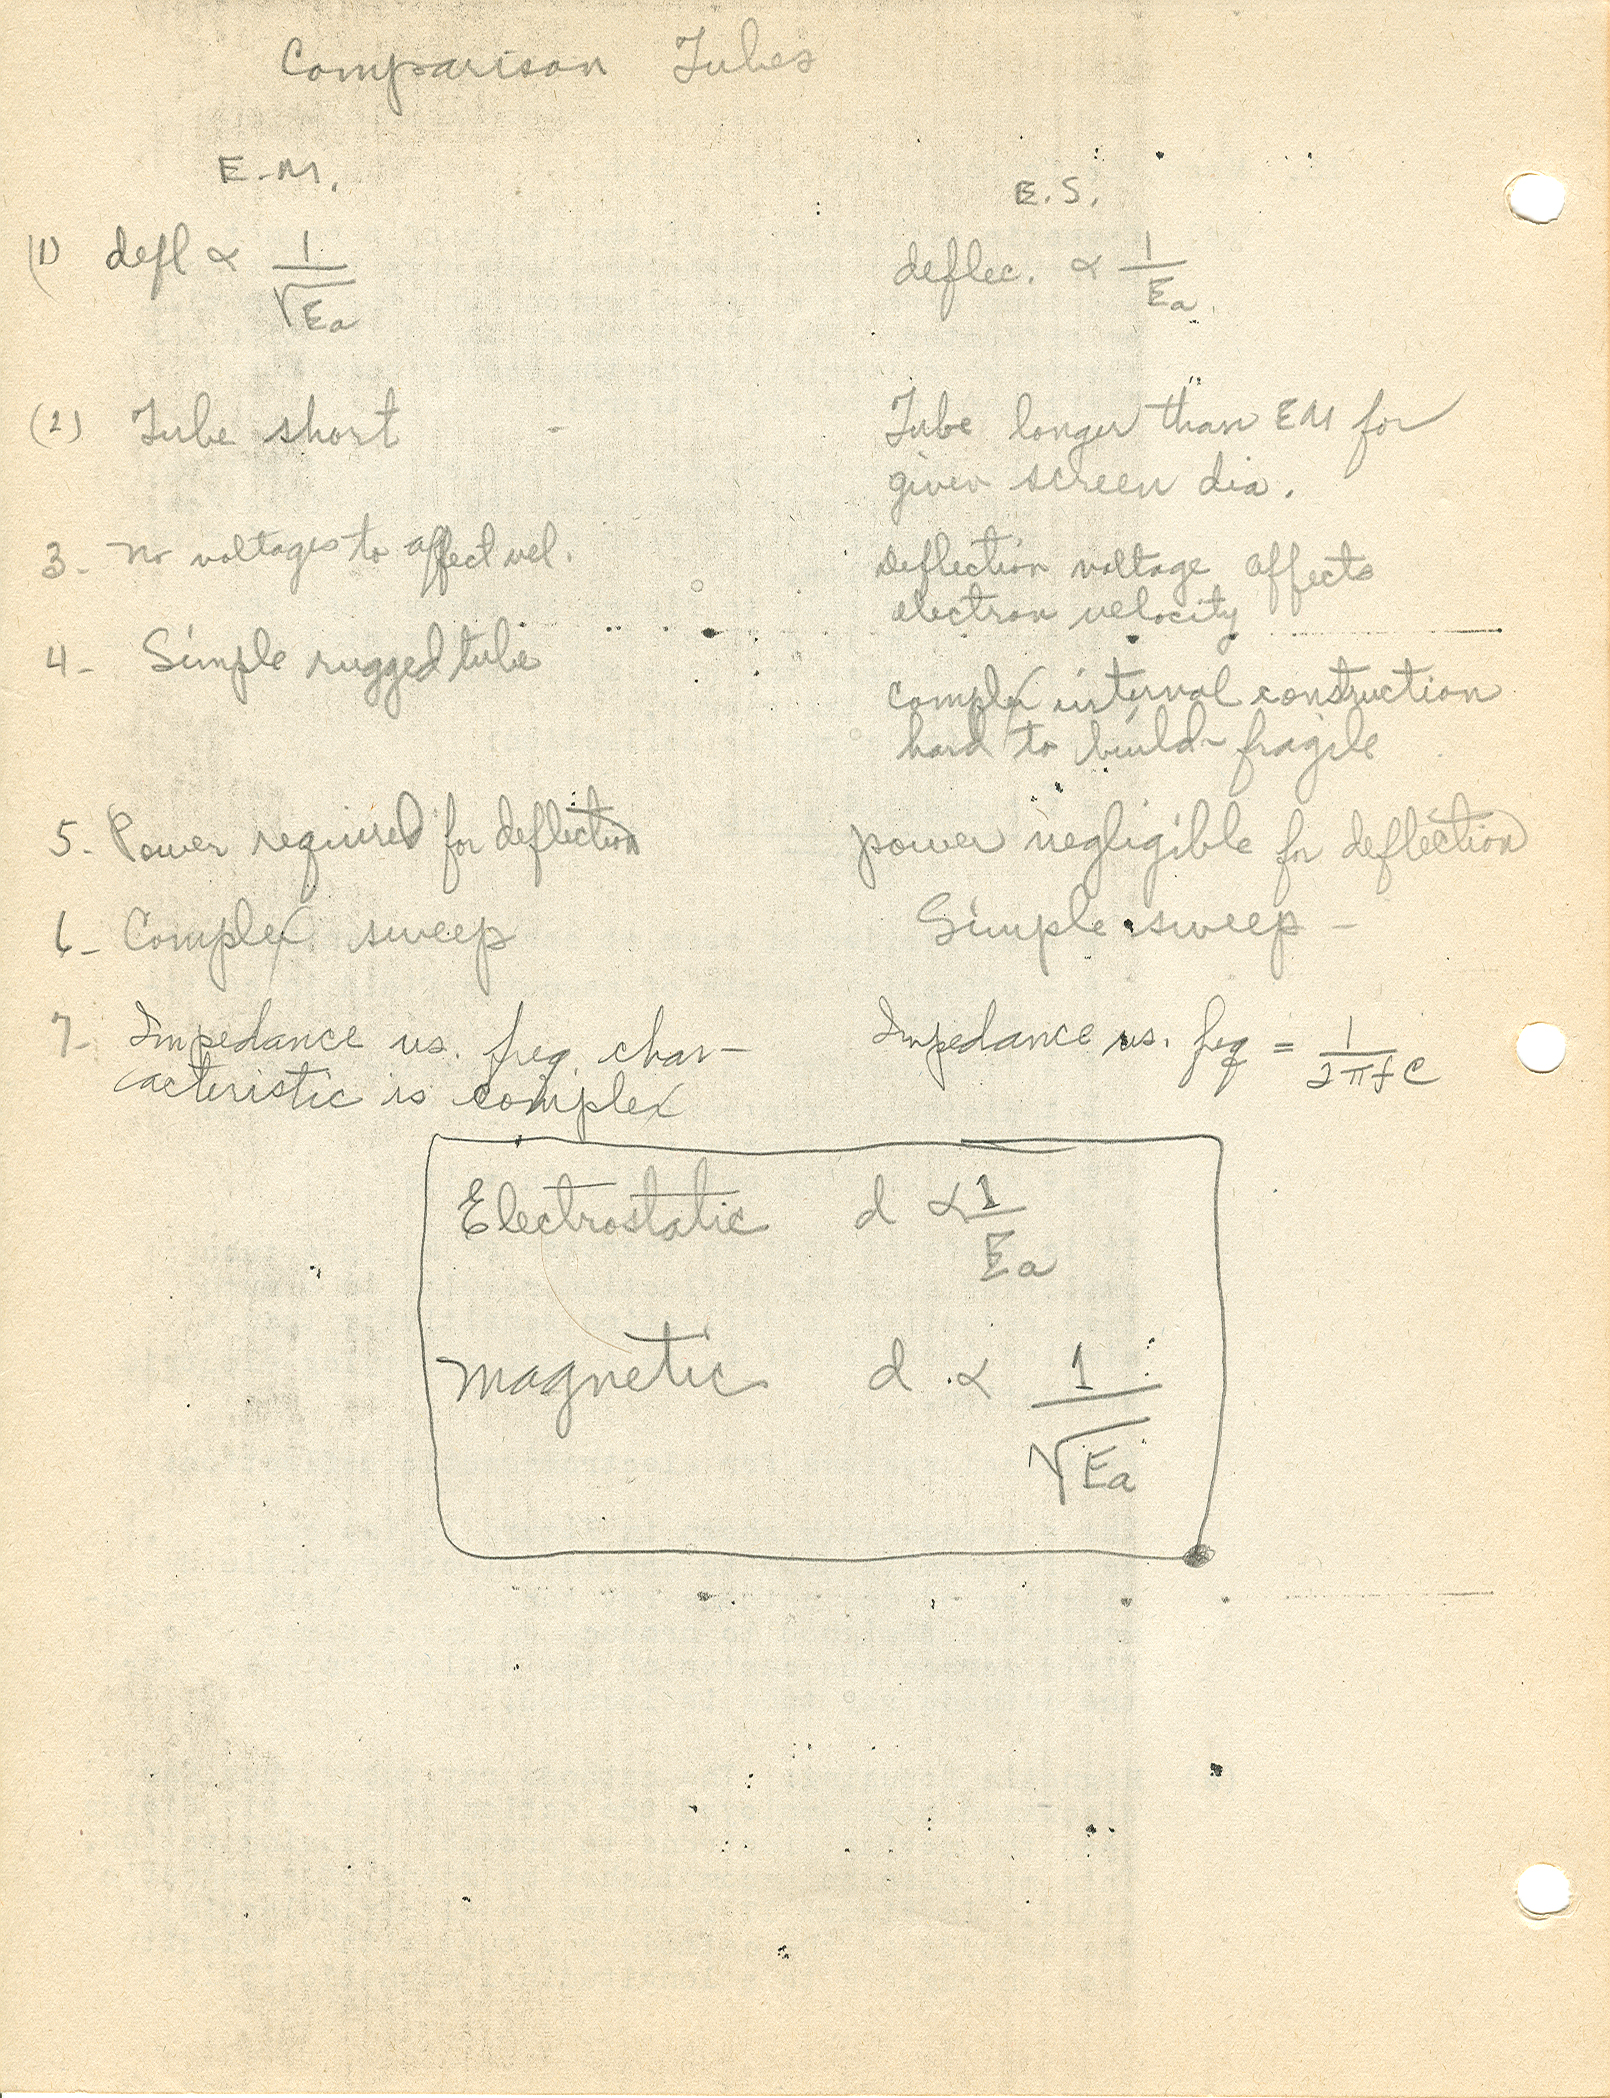 Comparison Tubes
E-M.
E.S.
(1) defl ∝ 1/√Ea
deflec. ∝ 1/Ea
(2) Tube short -
Tube longer than EM for
given screen dia.
3- No voltages to affect vel.
Deflection voltage affects
electron velocity
4- Simple rugged tube
complex internal construction
hard to build - fragile
5- Power required for deflection
power negligible for deflection
6- Complex sweep
Simple sweep -
7- Impedance vs. freq. char-
acteristic is complex
Impedance vs. freq = 1/2πfC
Electrostatic d ∝ 1/Ea
Magnetic d ∝ 1/√Ea